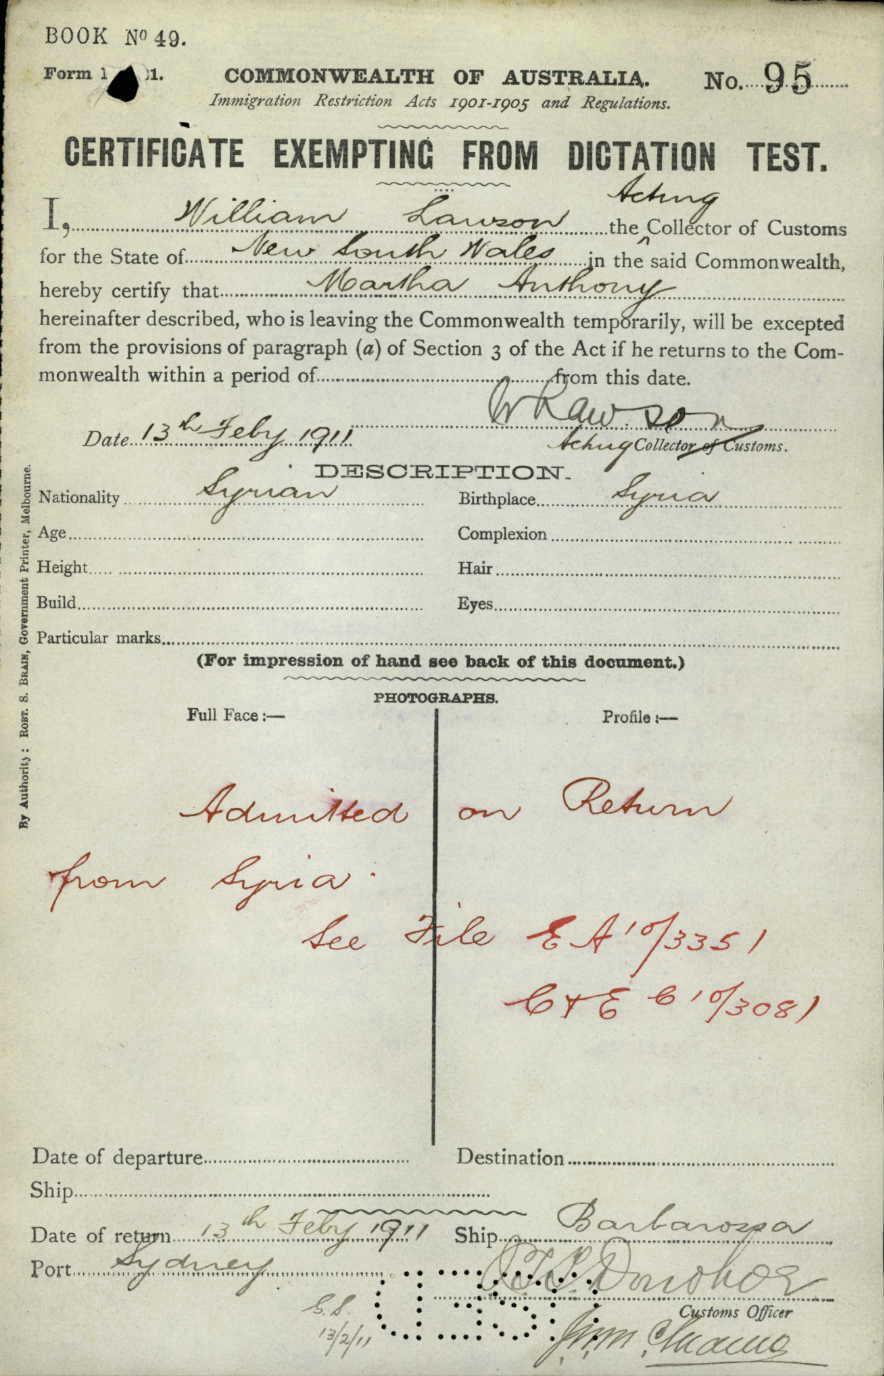 BOOK No 49.
Form 1.
COMMONWEALTH OF AUSTRALIA.
No. 95
Immigration Restriction Acts 1901-1905 and Regulations.
CERTIFICATE EXEMPTING FROM DICTATION TEST.
Acting
I, William Lawson the Collector of Customs
for the State of New South Wales in the said Commonwealth,
hereby certify that Martha Anthony
hereinafter described, who is leaving the Commonwealth temporarily, will be excepted
from the provisions of paragraph (a) of Section 3 of the Act if he returns to the Com-
monwealth within a period of from this date.
W Lawson
Date 13th Feby 1911
Acting Collector of Customs.
DESCRIPTION.
Nationality Syrian Birthplace Syria
Age Complexion
Height Hair
Build Eyes
Particular marks
(For impression of hand see back of this document.)
PHOTOGRAPHS.
Full Face :— Profile :—
Admitted on Return
from Syria.
See File E A 10/3351
C + E C 10/3081
Date of departure Destination
Ship
Date of return 13th Feby 1911 Ship Barbarossa
Port Sydney
Donohoe
Customs Officer
13/2/11
By Authority: ROBT. S. BRAIN, Government Printer, Melbourne.